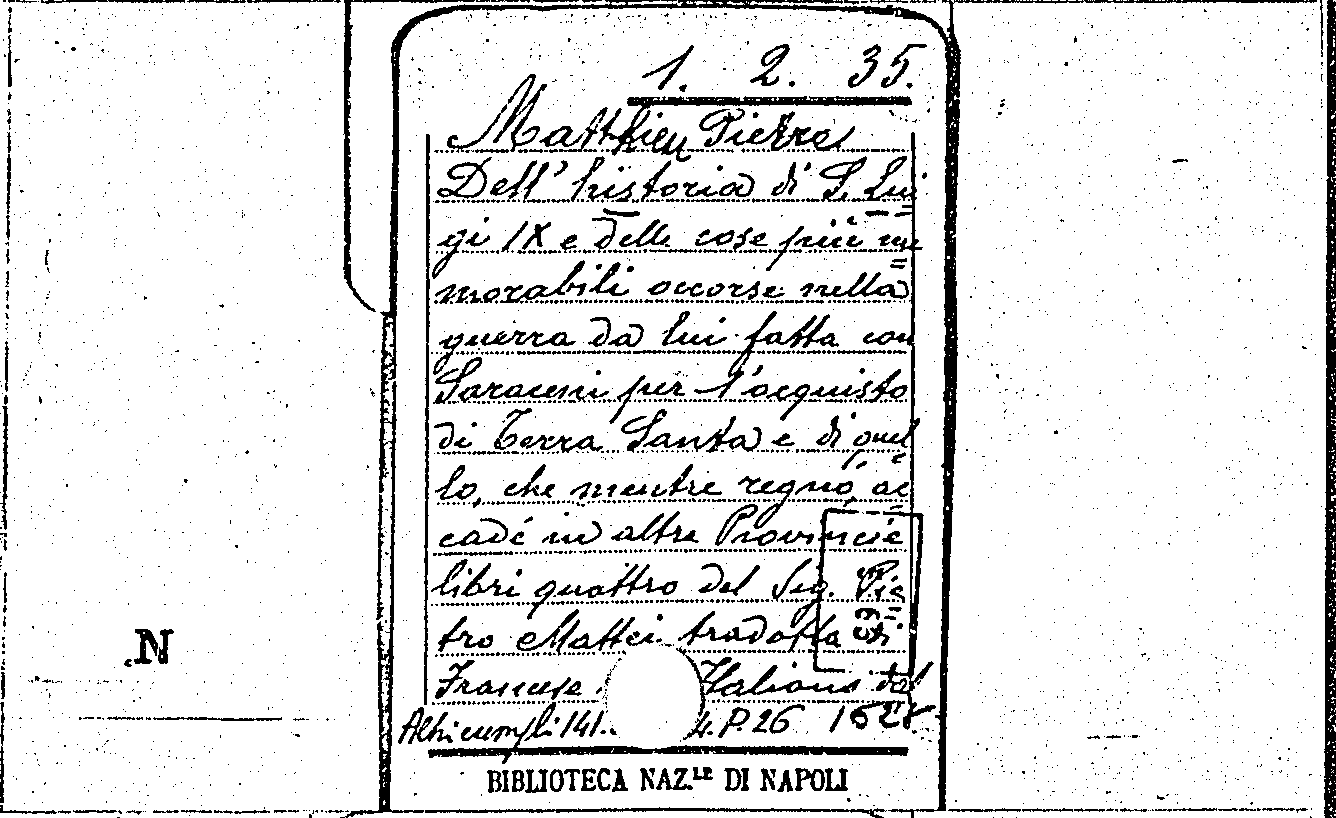 1. 2. 35.
Matthieu Pierre
Dell' historia di S. Lui=
gi IX e delle cose più me=
morabili occorse nella
guerra da lui fatta con
Saraceni per l'acquisto
di Terra Santa e di quel=
lo, che mentre regnò, ac=
cadé in altre Provincie
libri quattro del Sig. Pie=
tro Mattei tradotta di
Francese Italiano dal
Altri esempli 141. 4. P. 26
N
BIBLIOTECA NAZ.LE DI NAPOLI